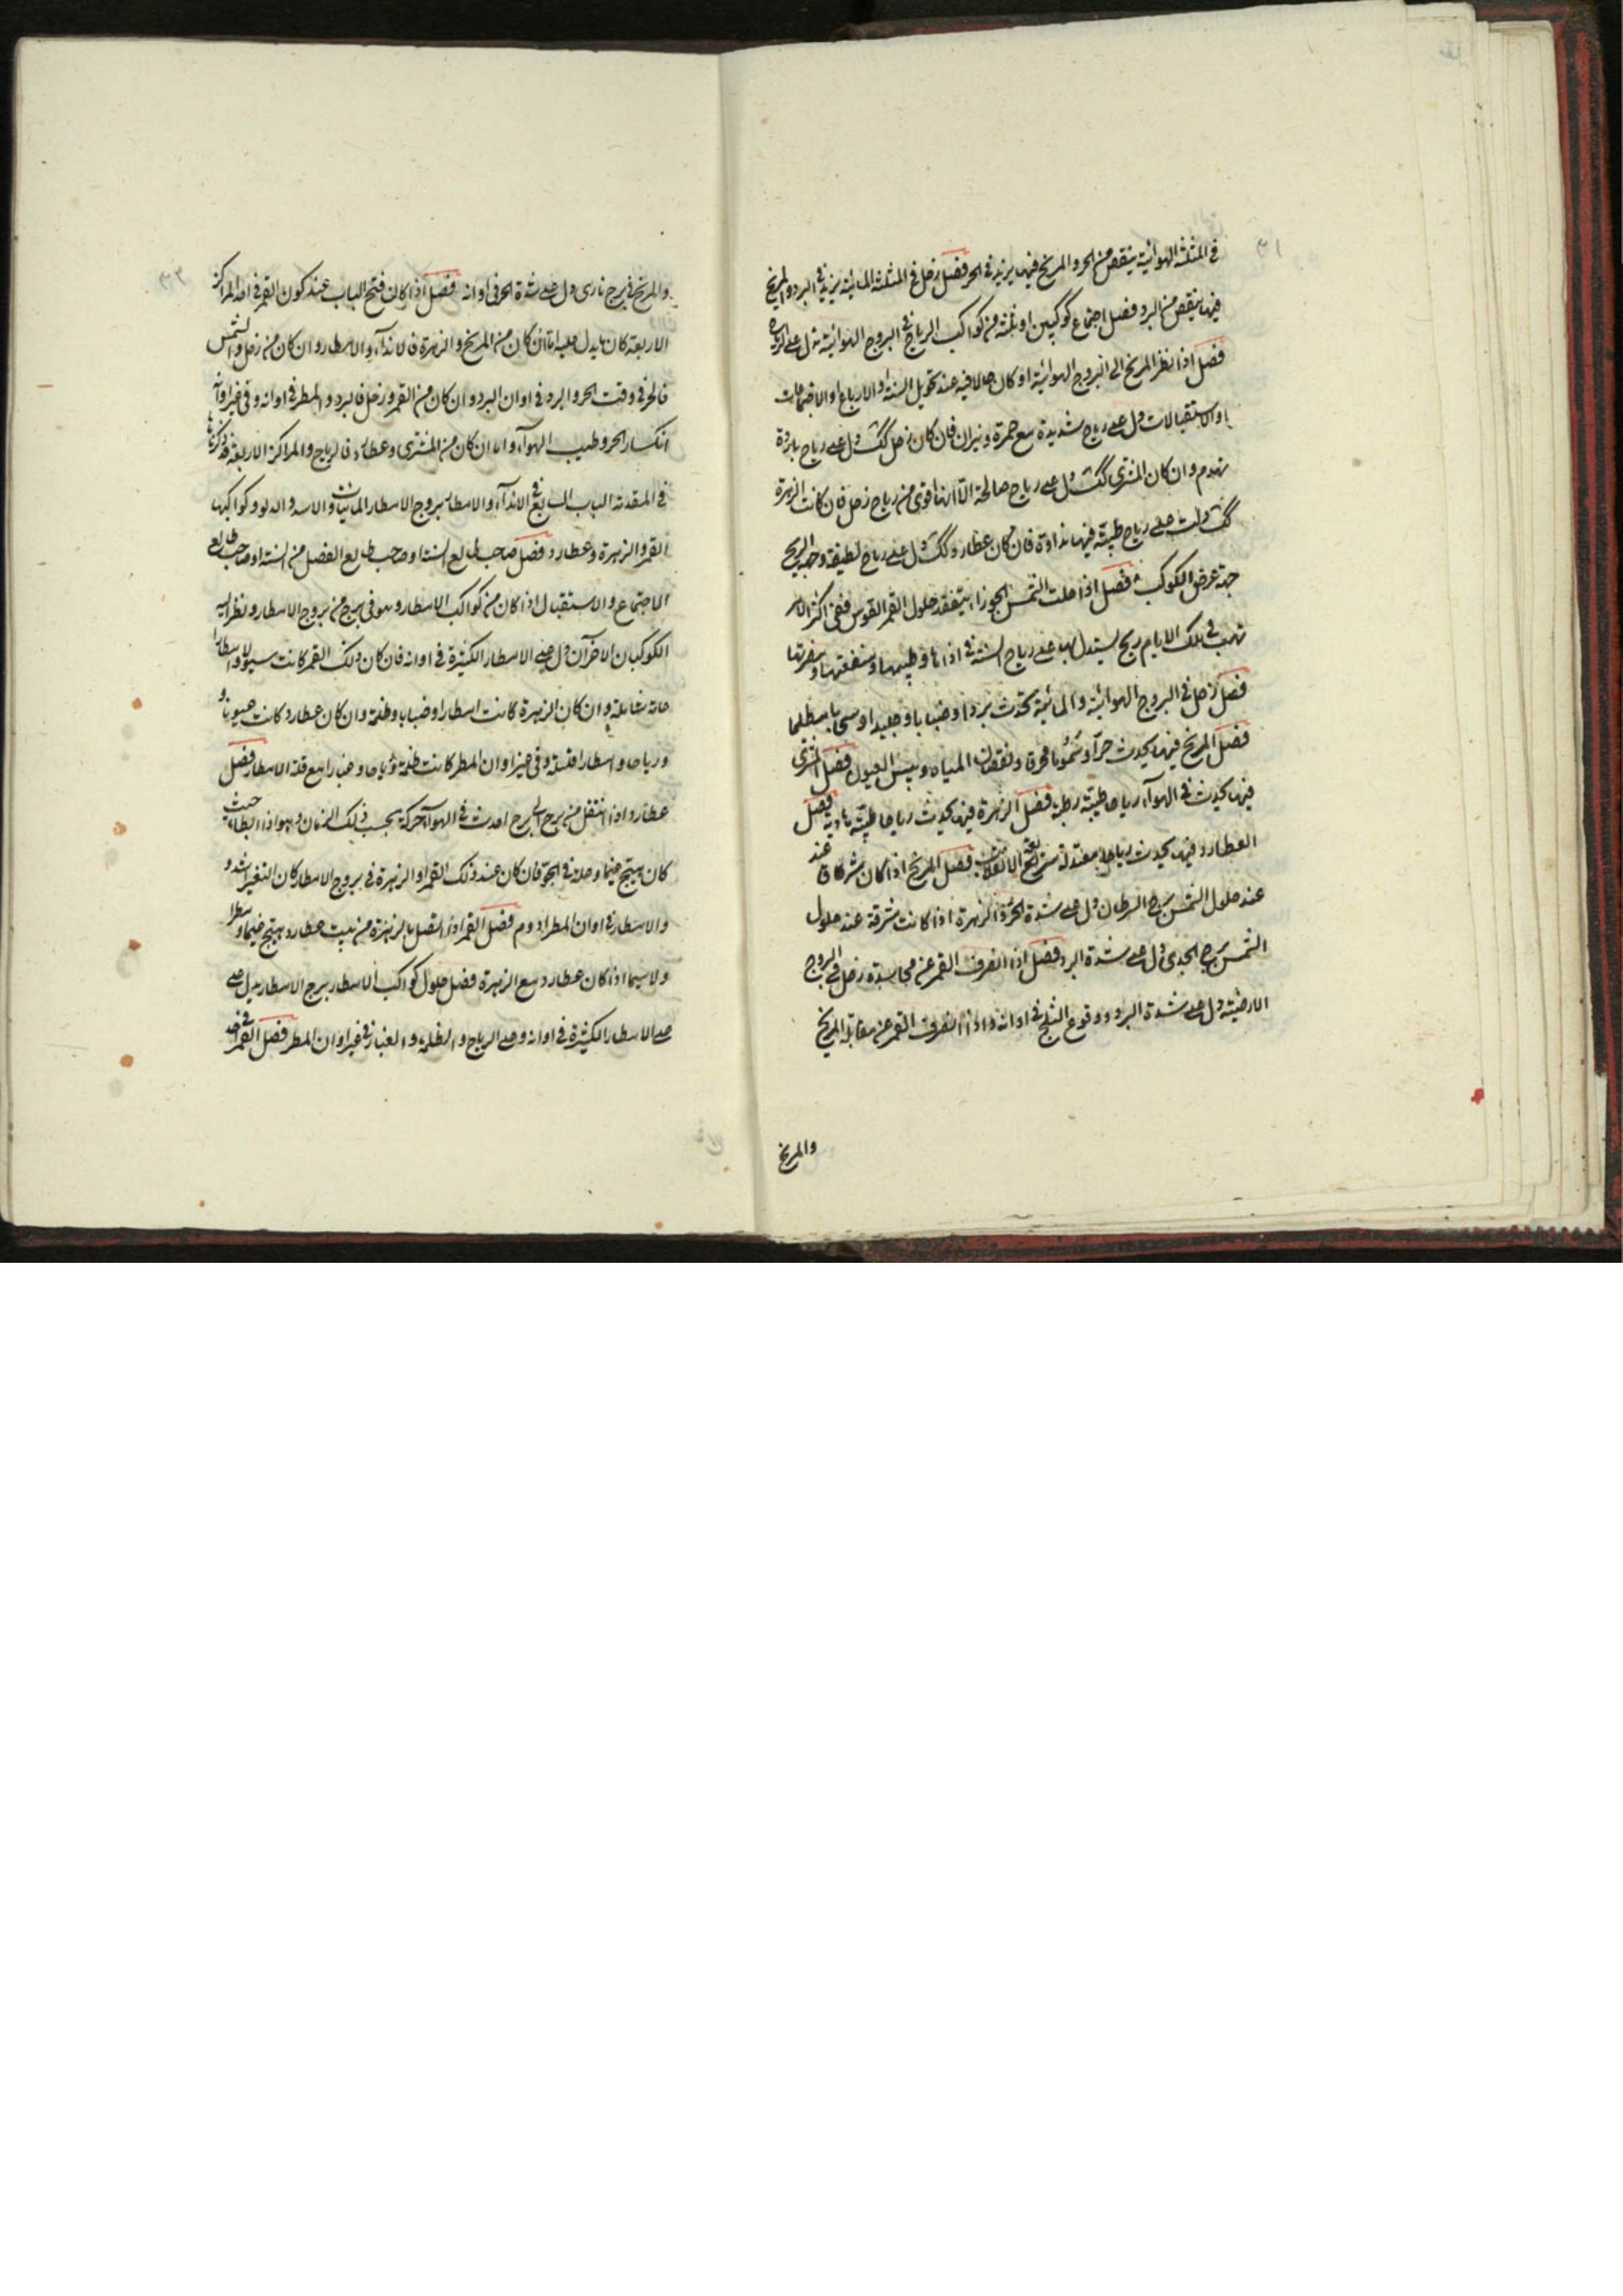 في المثلثة الهوائية ينقص من الحر والمريخ فيها يزيد في الحر فصل زحل في المثلثة المائية يزيد في البرد والمريخ
فيها ينقص من البرد فصل اجتماع كوكبين او ثلثة من كواكب الرياح في البروج الهوائية تدل على الرياح
فصل اذا نظر المريخ الى البروج الهوائية او كان حالا فيه عند تحويل السنة او الارباع او الاجتماعات
او الاستقبالات دل على رياح شديدة مع حمرة ونيران فان كان زحل كك دل على رياح باردة
تهدم وان كان المشترى كك دل على رياح صالحة الا انها اقوى من رياح زحل فان كانت الزهرة
كك دلت على رياح طيبة فيها نداوة فان كان عطارد كك دل على رياح لطيفة وجهة الريح
جهة عرض الكوكب فصل اذا حلت الشمس الجوزا يتفقد حلول القمر القوس ففى اكثر الامر
تهب في تلك الايام ريح يستدل بها على رياح السنة في اذاها وطيبها ومنفعتها ومضرتها
فصل زحل في البروج الهوائية والمائية يحدث بردا وضبابا وجليدا او سحابا مظلما
فصل المريخ فيها يحدث حرا وسموما محرقا ونقصان المياه ويبس العيون فصل المشترى
فيها يحدث في الهوآء رياحا طيبة رطبة فصل الزهرة فيها يحدث رياحا طيبة نادية فصل
العطارد فيها يحدث رياحا معتدلة سريعة الانقلاب فصل المريخ اذا كان مشرقا عند
عند حلول الشمس برج السرطان دل على شدة الحر والزهرة اذا كانت مشرقة عند حلول
الشمس برج الجدى دل على شدة البرد فصل اذا انصرف القمر عن مجاسدة زحل في البروج
الارضية دل على شدة البرد ووقوع الثلج في اوانه واذا انصرف القمر عن مقابلة المريخ
والمريخ
والمريخ في برج نارى دل على شدة الحر في اوانه فصل اذا كان فتح الباب عند كون القمر في احد المراكز
الاربعة كان ما يدل عليه اما ان كان من المريخ والزهرة فالاندآء والامطار وان كان من زحل والشمس
فالحر في وقت الحر والبرد في اوان البرد وان كان من القمر وزحل فالبرد والمطر في اوانه وفى غير اوانه
انكسار الحر وطيب الهوآء واما ان كان من المشترى وعطارد فالرياح والمراكز الاربعة قد ذكرناها
في المقدمة الباب السابع في الاندآء والامطار بروج الامطار المائيات والاسد والدلو وكواكبها
القمر والزهرة وعطارد فصل صاحب طالع السنة او صاحب طالع الفصل من السنة او صاحب طالع
الاجتماع والاستقبال اذا كان من كواكب الامطار وهو في برج من بروج الامطار ونظر اليه
الكوكبان الاخرآن دل على الامطار الكثيرة في اوانه فان كان ذلك القمر كانت سيولا وامطارا
عامة شاملة وان كان الزهرة كانت امطارا وضبابا وظلمة وان كان عطارد كانت غيوما و
ورياحا وامطارا قليلة وفى غير اوان المطر كانت ظلمة ورياحا وغبارا مع قلة الامطار فصل
عطارد اذا انتقل من برج الى برج احدث في الهوآء حركة بحسب ذلك الزمان وهو اذا ابطا حيث
كان يهيج غيما وظلمة في الجو فان كان عند ذلك القمر او الزهرة في بروج الامطار كان التغير اشد و
والامطار في اوان المطر ادوم فصل القمر اذا اتصل بالزهرة من بيت عطارد يهيج غيما ومطرا
ولا سيما اذا كان عطارد مع الزهرة فصل حلول كواكب الامطار برج الامطار يدل على
على الامطار الكثيرة في اوانه وعلى الرياح والظلمة والغبار في غير اوان المطر فصل القمر في حد